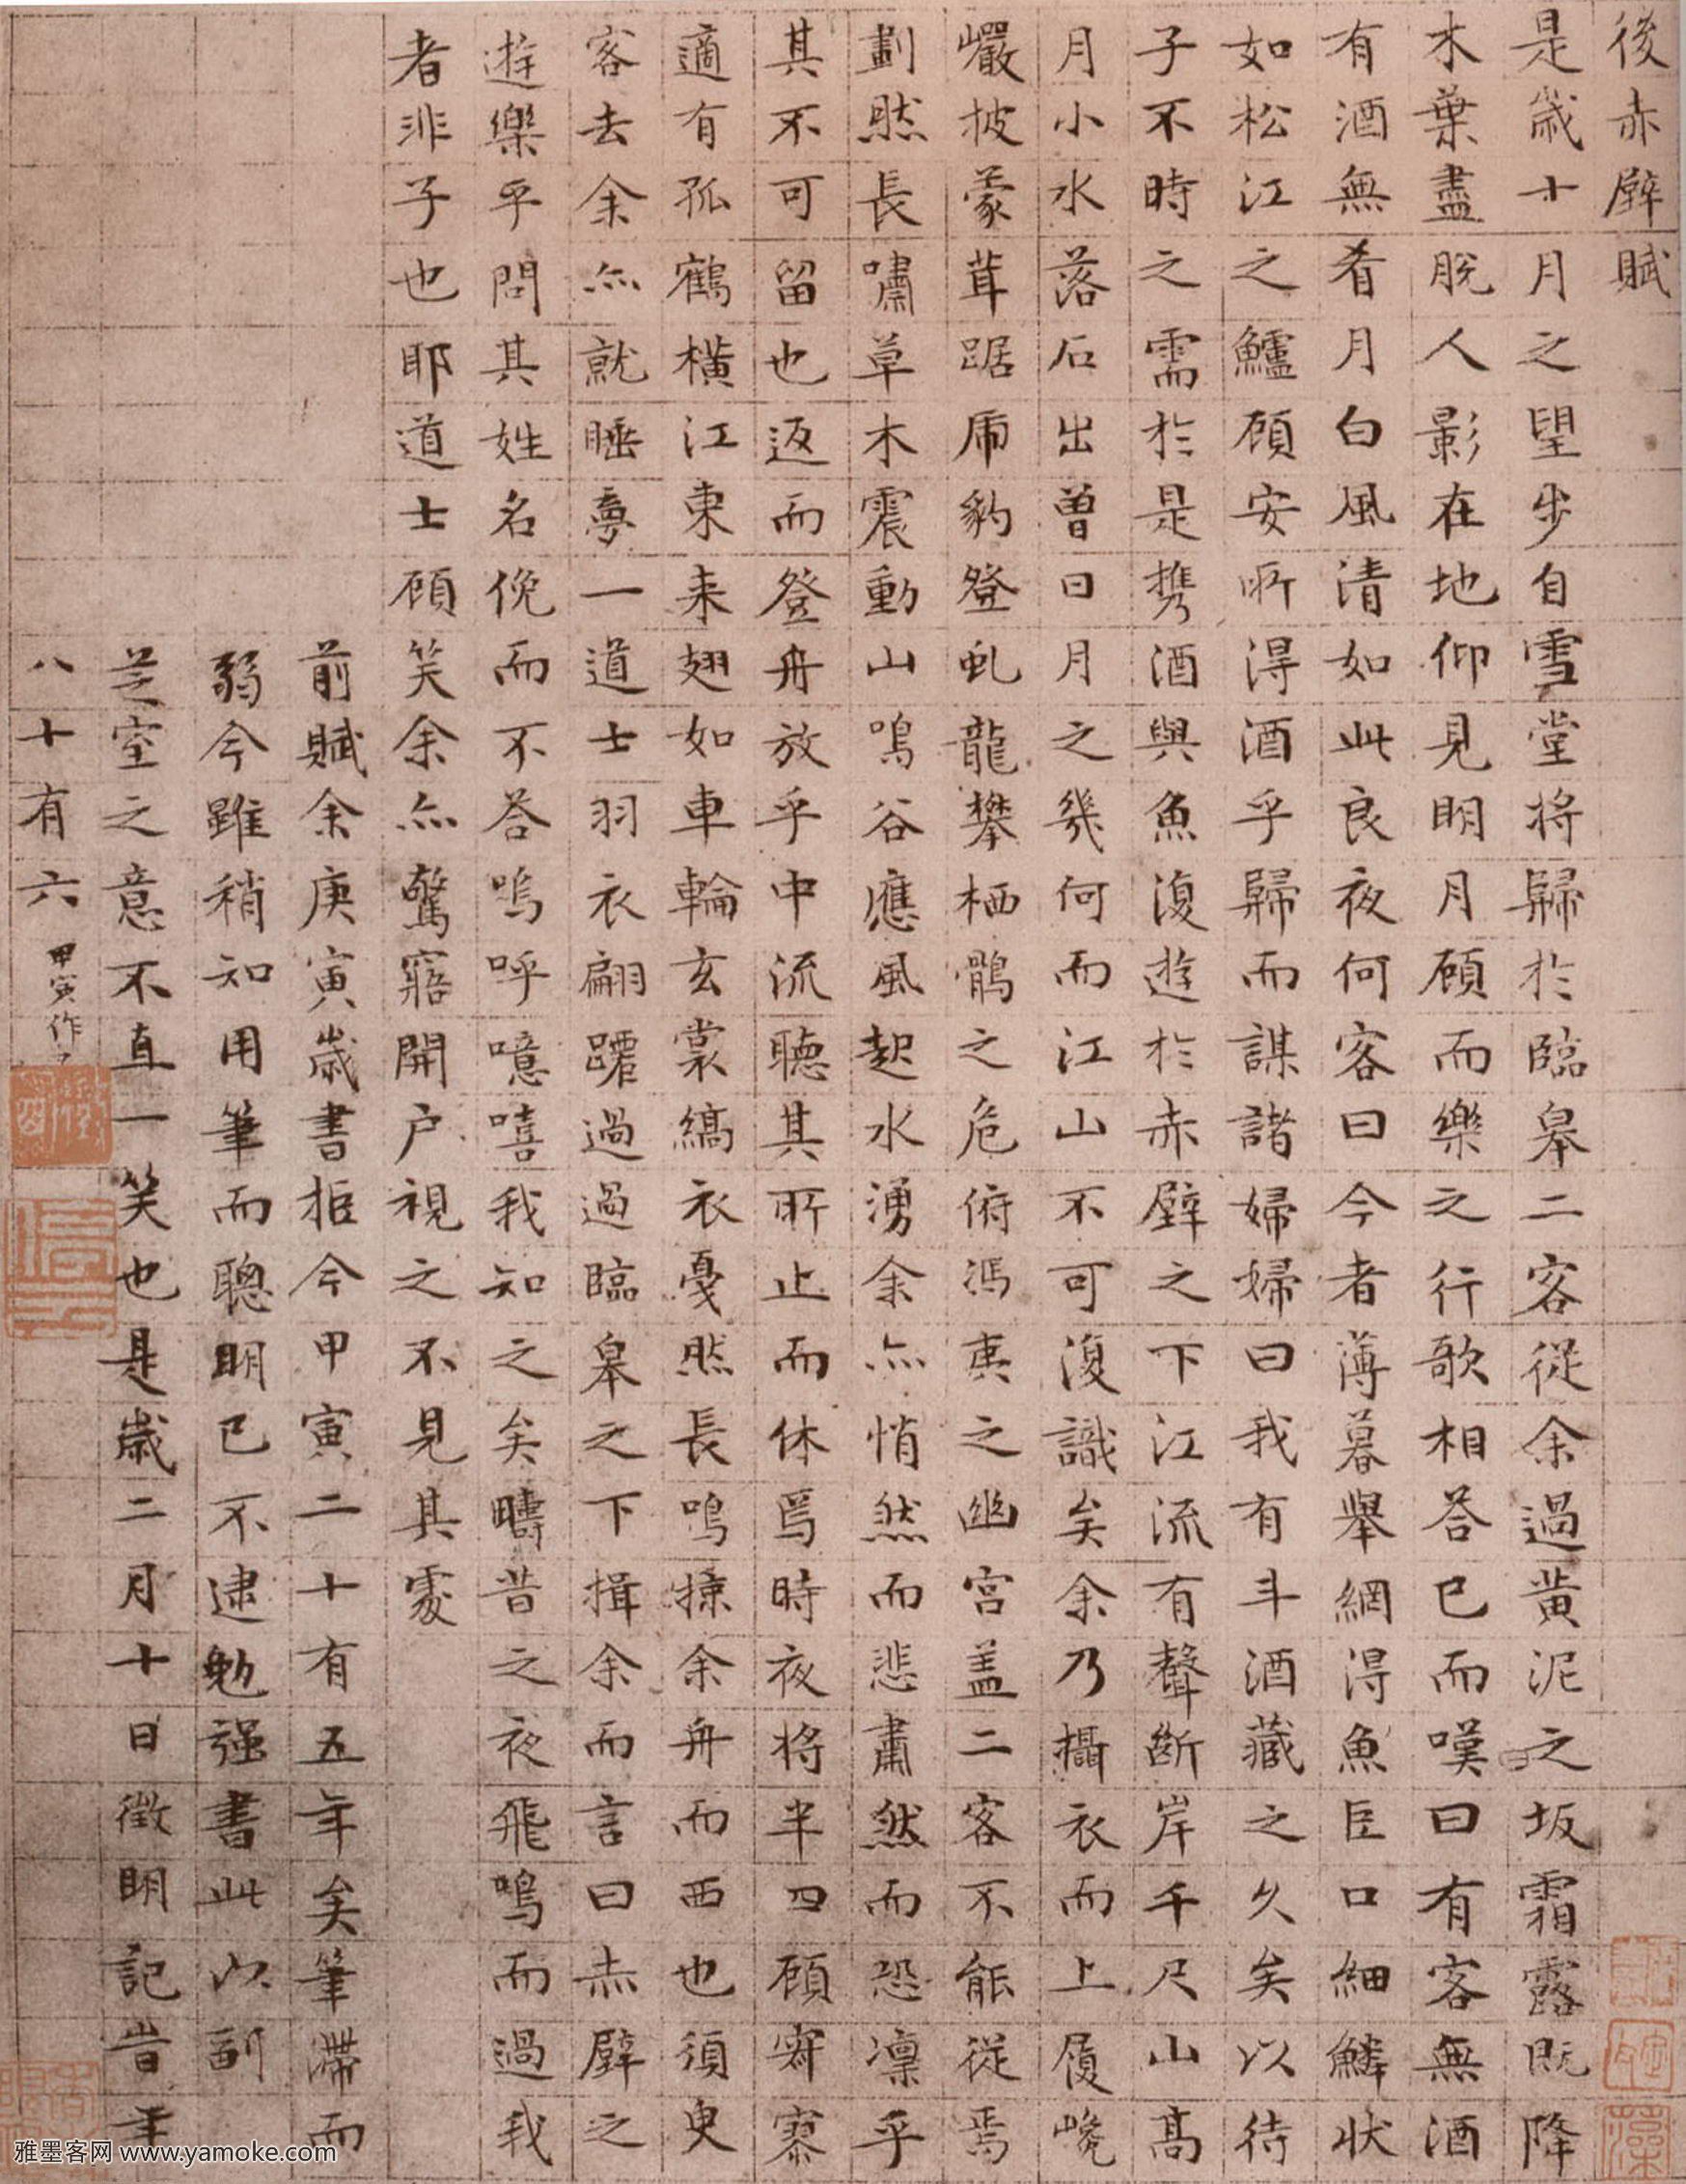 後赤壁賦
是歲十月之望步自雪堂將歸於臨皋二客從余過黃泥之坂霜露既降
木葉盡脫人影在地仰見明月顧而樂之行歌相荅已而嘆曰有客無酒
有酒無肴月白風清如此良夜何客曰今者薄暮舉網得魚巨口細鱗狀
如松江之鱸顧安所得酒乎歸而謀諸婦婦曰我有斗酒藏之久矣以待
子不時之需於是携酒與魚復遊於赤壁之下江流有聲斷岸千尺山高
月小水落石出曾日月之幾何而江山不可復識矣余乃攝衣而上履巉
巖披蒙茸踞虎豹登虬龍攀栖鶻之危俯馮夷之幽宮盖二客不能從焉
劃然長嘯草木震動山鳴谷應風起水湧余亦悄然而悲肅然而恐凛乎
其不可留也返而登舟放乎中流聽其所止而休焉時夜將半四顧寂寥
適有孤鶴橫江東来翅如車輪玄裳縞衣戛然長鳴掠余舟而西也須臾
客去余亦就睡夢一道士羽衣翩躚過過臨皋之下揖余而言曰赤壁之
遊樂乎問其姓名俛而不荅嗚呼噫嘻我知之矣疇昔之夜飛鳴而過我
者非子也耶道士顧笑余亦驚寤開户視之不見其處
前賦余庚寅歲書抵今甲寅二十有五年矣筆滯而
弱今雖稍知用筆而聰明已不逮勉强書此以副
芝室之意不直一笑也是歲二月十日徵明記旹年
八十有六 甲寅作
雅墨客网 www.yamoke.com